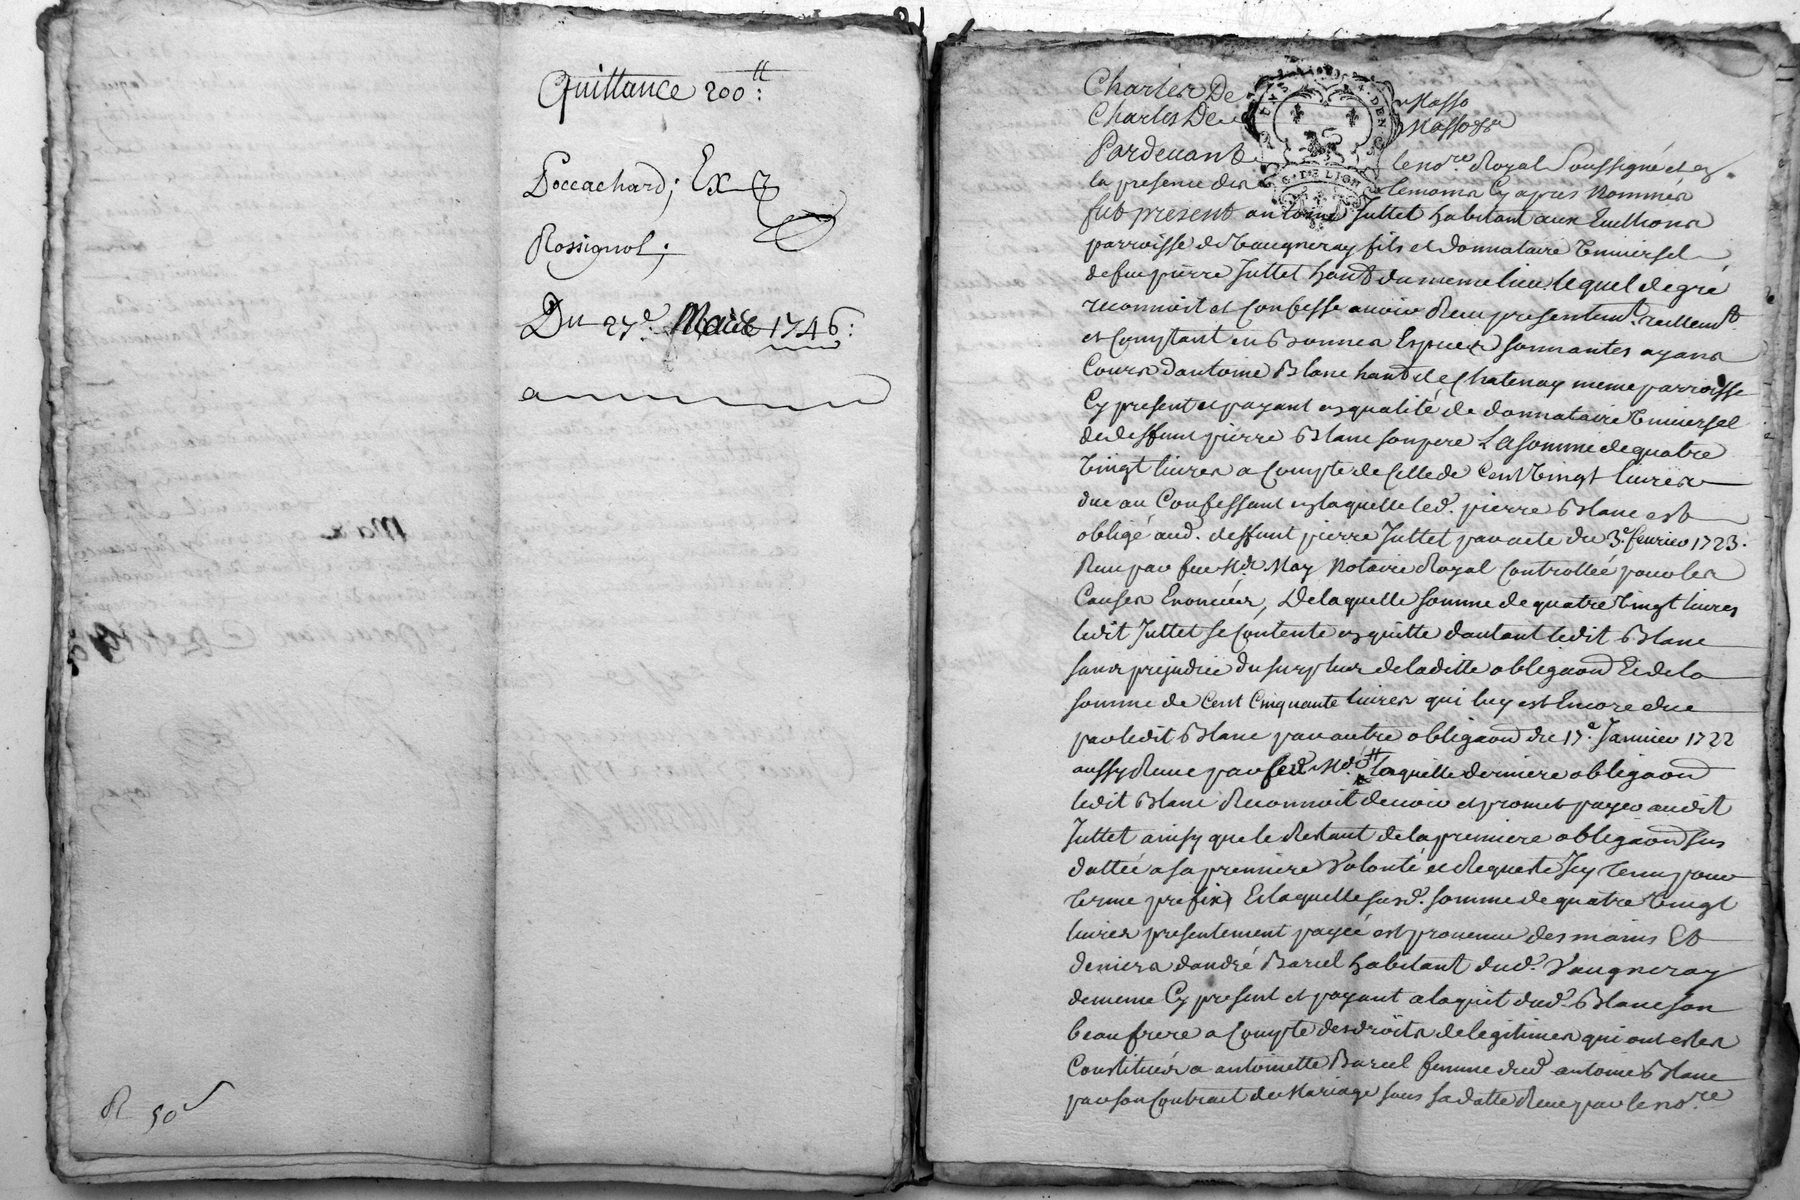 Quittance 200ᵗᵗ:
Poccachard; Ex
Rossignol;
Du 27ᵉ. Mars 1746:
R 50ˢ
Charles De Masso
Charles De Masso
Pardevant le noʳᵉ Royal Soussigné et en
la presence des temoins Cy apres Nommés
fut present antoine Juttet habitant aux
parroisse de Vaugneray fils et donnataire Universel
de feu pierre Juttet habᵗ du meme lieu lequel de gré
reconnoit et Confesse avoir Reçu presentemᵗ. reellemᵗ
et Comptant en Bonnes Especes sonnantes ayans
Cours dantoine Blanc habᵗ de Chatenay meme parroisse
Cy present et payant en qualité de donnataire Universel
de deffunt pierre Blanc son pere La somme de quatre
Vingt livres a Compte de Celle de Cent Vingt livres
due au Confessant en laquelle led. pierre Blanc est
obligé aud. deffunt pierre Juttet par acte du 3ᵉ fevrier 1723.
Reçu par feu Mᵉ May Notaire Royal Controllée pour les
Causes Enoncées, De laquelle somme de quatre Vingt livres
ledit Juttet se Contente en quitte dautant ledit Blanc
sans prejudice du surplus de laditte obligaon Et de la
somme de Cent Cinquante livres qui luy est Encore due
par ledit Blanc par autre obligaon du 17ᵉ. Janvier 1722
aussy Reçue par led Mᵉ laquelle derniere obligaon
ledit Blanc Reconnoit devoir et promet payer audit
Juttet ainsy que le Restant de la premiere obligaon sus
dattée a sa premiere Volonté et Requeste Icy tenu pour
terme prefix, Et laquelle susd. somme de quatre Vingt
livres presentement payée est provenue des mains Et
deniers dandré Barcel habitant dud. Vaugneray
de meme Cy present et payant a laquit dud. Blanc son
beaufrere a Compte des droits de legitimes qui ont estes
Constitués a antoinette Barcel femme dud antoine Blanc
par son Contract de Mariage sous sa datte Reçu par le noʳᵉ